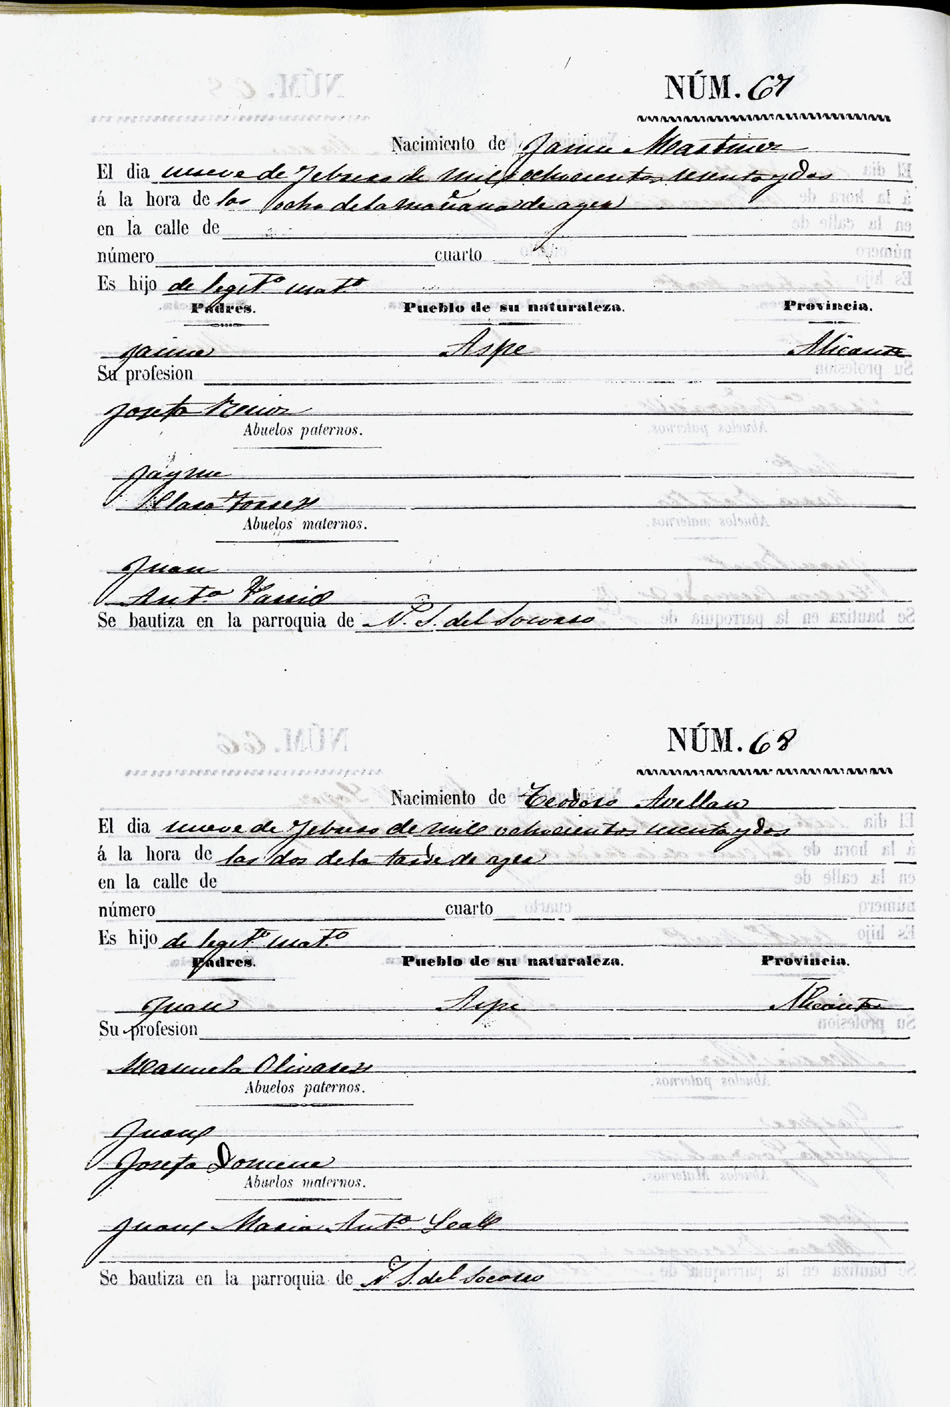 NÚM. 67
Nacimiento de Jaime Martinez
El dia nueve de Febrero de mil ochocientos sesenta y dos
á la hora de las ocho de la mañana de ayer
en la calle de
número cuarto
Es hijo de legitᵒ matᵒ
Padres. Pueblo de su naturaleza. Provincia.
Jaime Aspe Alicante
Su profesion
Josefa
Abuelos paternos.
Jayme
Clara Torres
Abuelos maternos.
Juan
Antᵃ
Se bautiza en la parroquia de N. S. del Socorro
NÚM. 68
Nacimiento de Teodoro Avellan
El dia nueve de Febrero de mil ochocientos sesenta y dos
á la hora de las dos de la tarde de ayer
en la calle de
número cuarto
Es hijo de legitᵒ matᵒ
Padres. Pueblo de su naturaleza. Provincia.
Juan Aspe Alicante
Su profesion
Manuela Olivares
Abuelos paternos.
Juan
Josefa Domene
Abuelos maternos.
Juan Maria Antᵃ
Se bautiza en la parroquia de N. S. del Socorro